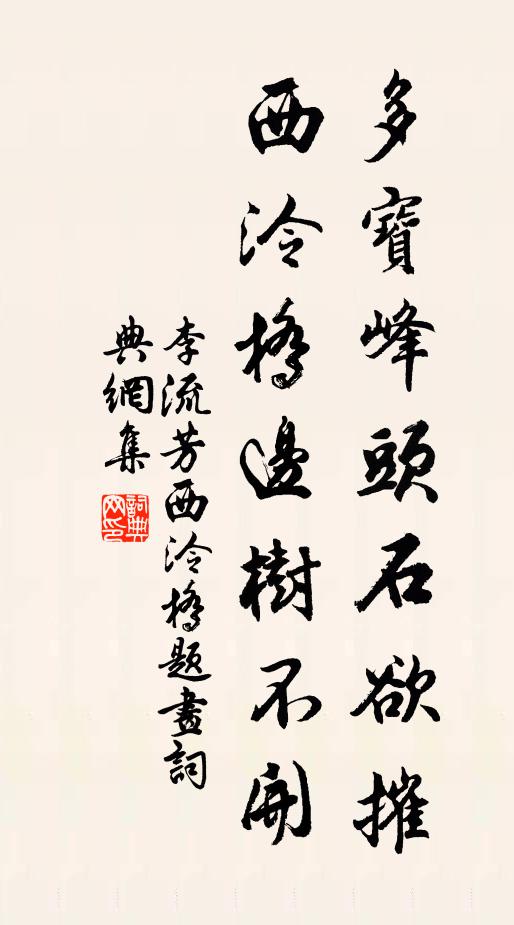 多寶峰頭石欲摧
西泠橋邊樹不開
李流芳西泠橋題畫詞
典網集
詞典網印